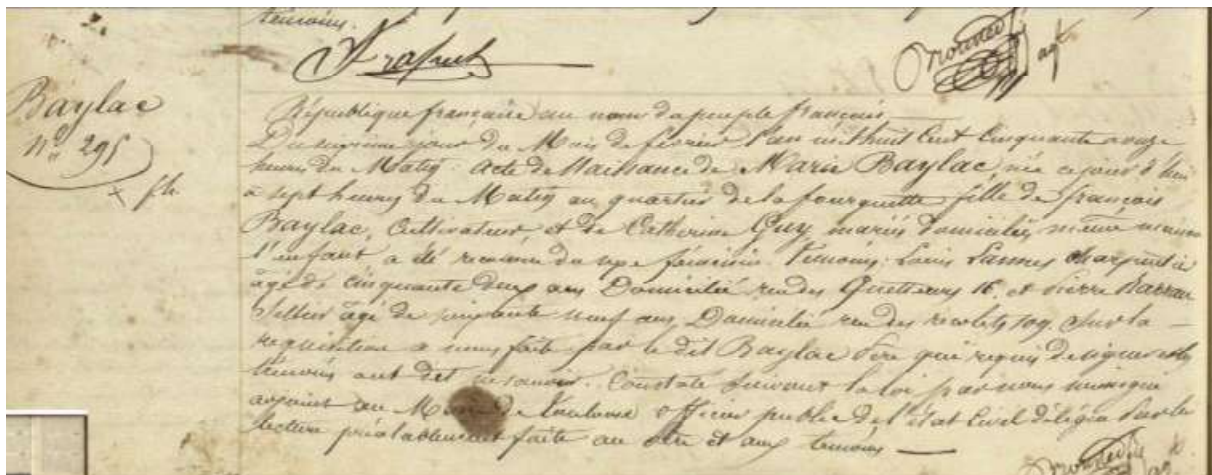 témoins.
Baylac
n° 295
fh.
République française au nom du peuple français
Du onzième jour du Mois de février l'an mil huit Cent Cinquante a onze
heures du Matin. Acte de Naissance de Marie Baylac, née ce jour d'hui
à sept heures du Matin au quartier de lafourguette fille de françois
Baylac, Cultivateur et de Catherine Guy mariés domiciliés même maison
l'enfant a été reconnu du sexe féminin. Témoins: Louis Lannes Charpentier
âgé de cinquante deux ans Domicilié rue des 16. et pierre Barrau
Sellier âgé de soixante neuf ans, Domicilié rue des récolets 109. Sur la
requisition a nous faite par le dit Baylac Père qui requis de signer et les
témoins ont dit ne savoir. Constaté suivant la loi par nous soussigné
adjoint au Maire de Toulouse officier public de l'état Civil délégué
lecture préalablement faite au père et aux témoins